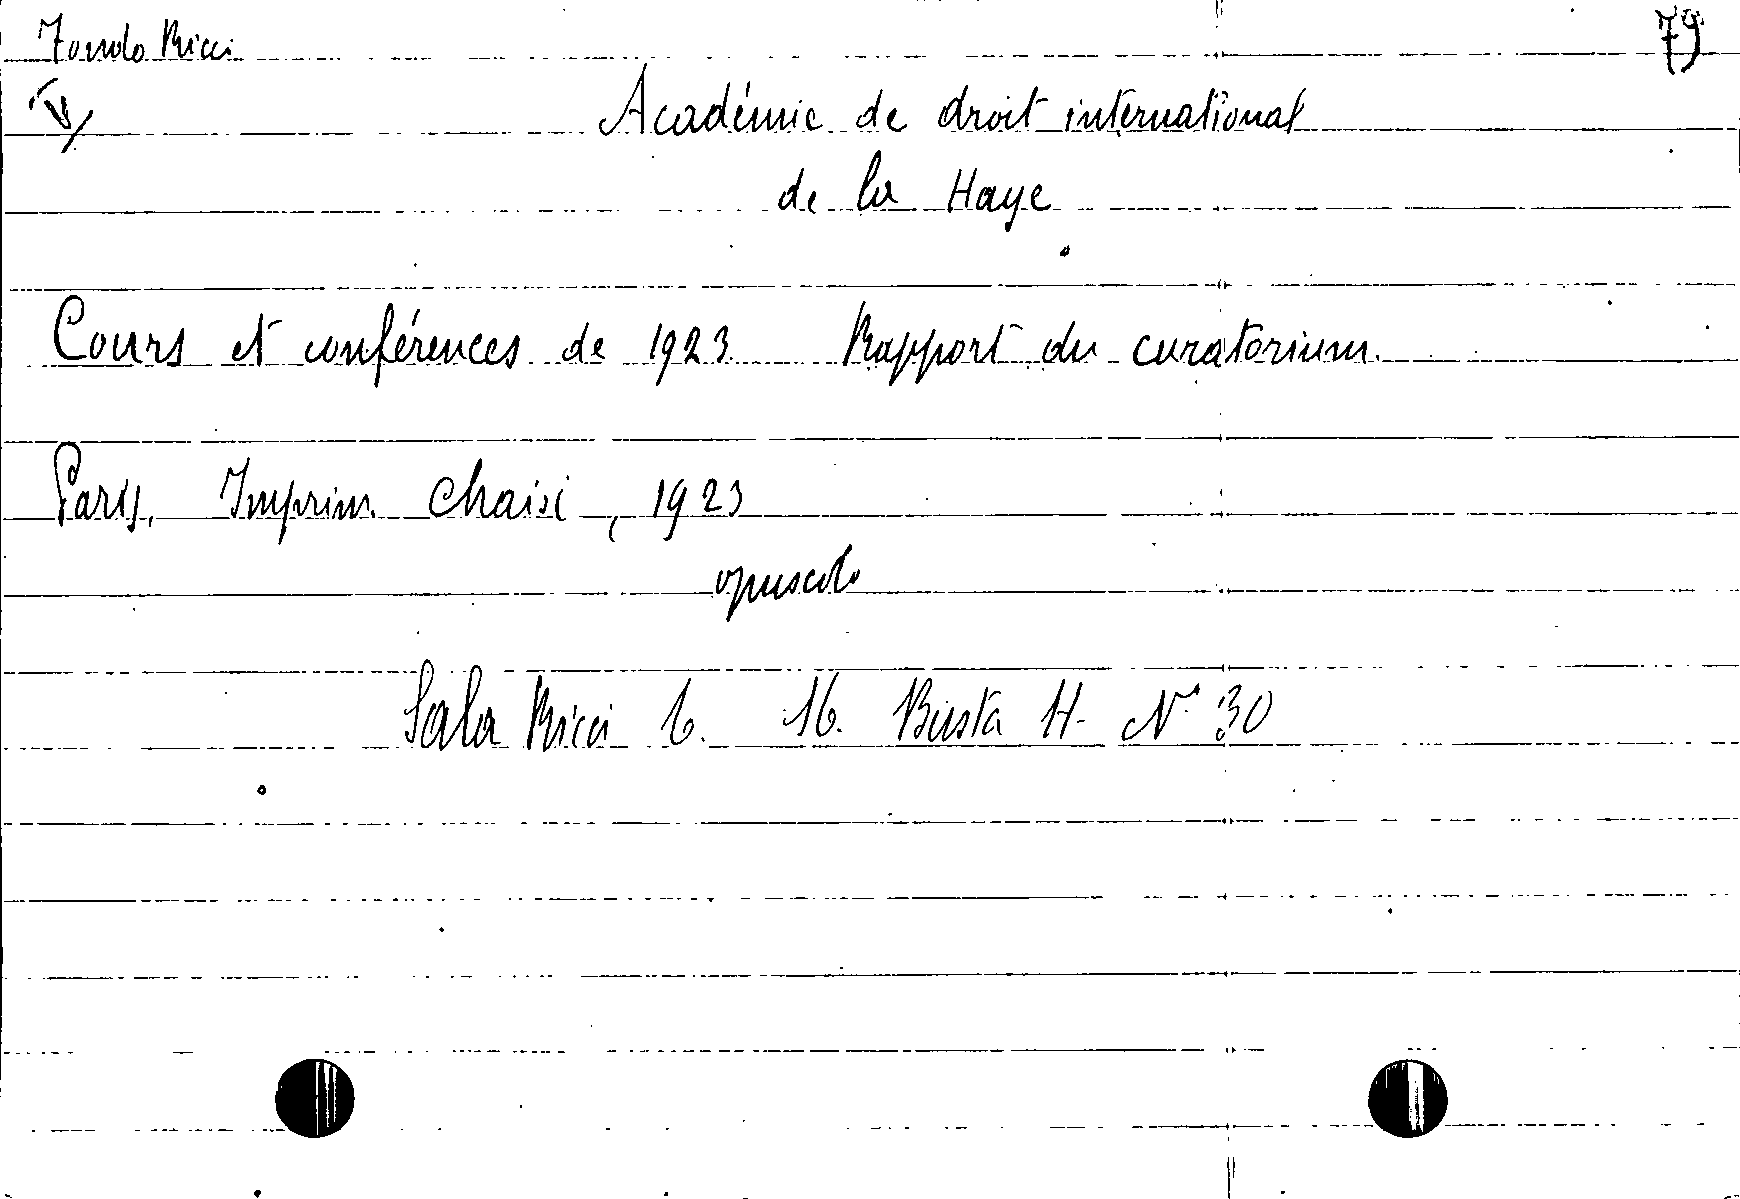 Fondo Ricci
79
Académie de droit international
de la Haye
Cours et conférences de 1923 Rapport du curatorium.
Paris, Imprim. Chaix, 1923
opuscolo
Sala Ricci 6. 16. Busta H. N° 30